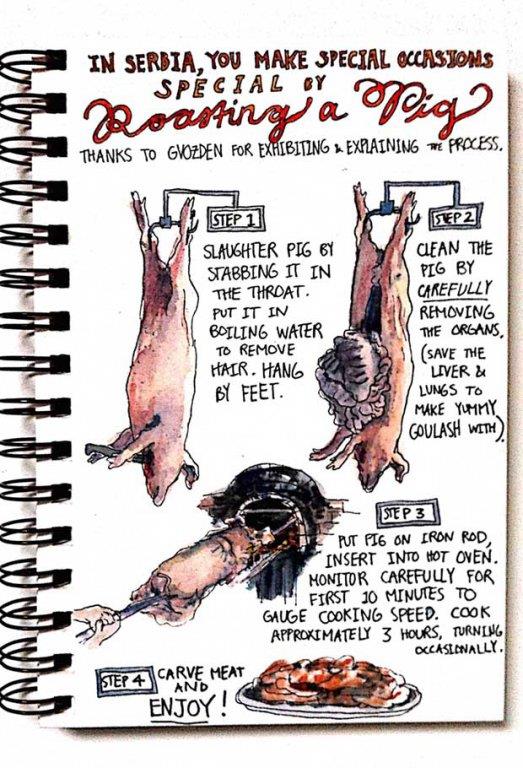 IN SERBIA, YOU MAKE SPECIAL OCCASIONS
SPECIAL BY
Roasting a Pig
THANKS TO GVOZDEN FOR EXHIBITING & EXPLAINING THE PROCESS.
STEP 1
SLAUGHTER PIG BY
STABBING IT IN
THE THROAT.
PUT IT IN
BOILING WATER
TO REMOVE
HAIR. HANG
BY FEET.
STEP 2
CLEAN THE
PIG BY
CAREFULLY
REMOVING
THE ORGANS.
(SAVE THE
LIVER &
LUNGS TO
MAKE YUMMY
GOULASH WITH)
STEP 3
PUT PIG ON IRON ROD,
INSERT INTO HOT OVEN.
MONITOR CAREFULLY FOR
FIRST 10 MINUTES TO
GAUGE COOKING SPEED. COOK
APPROXIMATELY 3 HOURS, TURNING
OCCASIONALLY.
STEP 4
CARVE MEAT
AND
ENJOY!